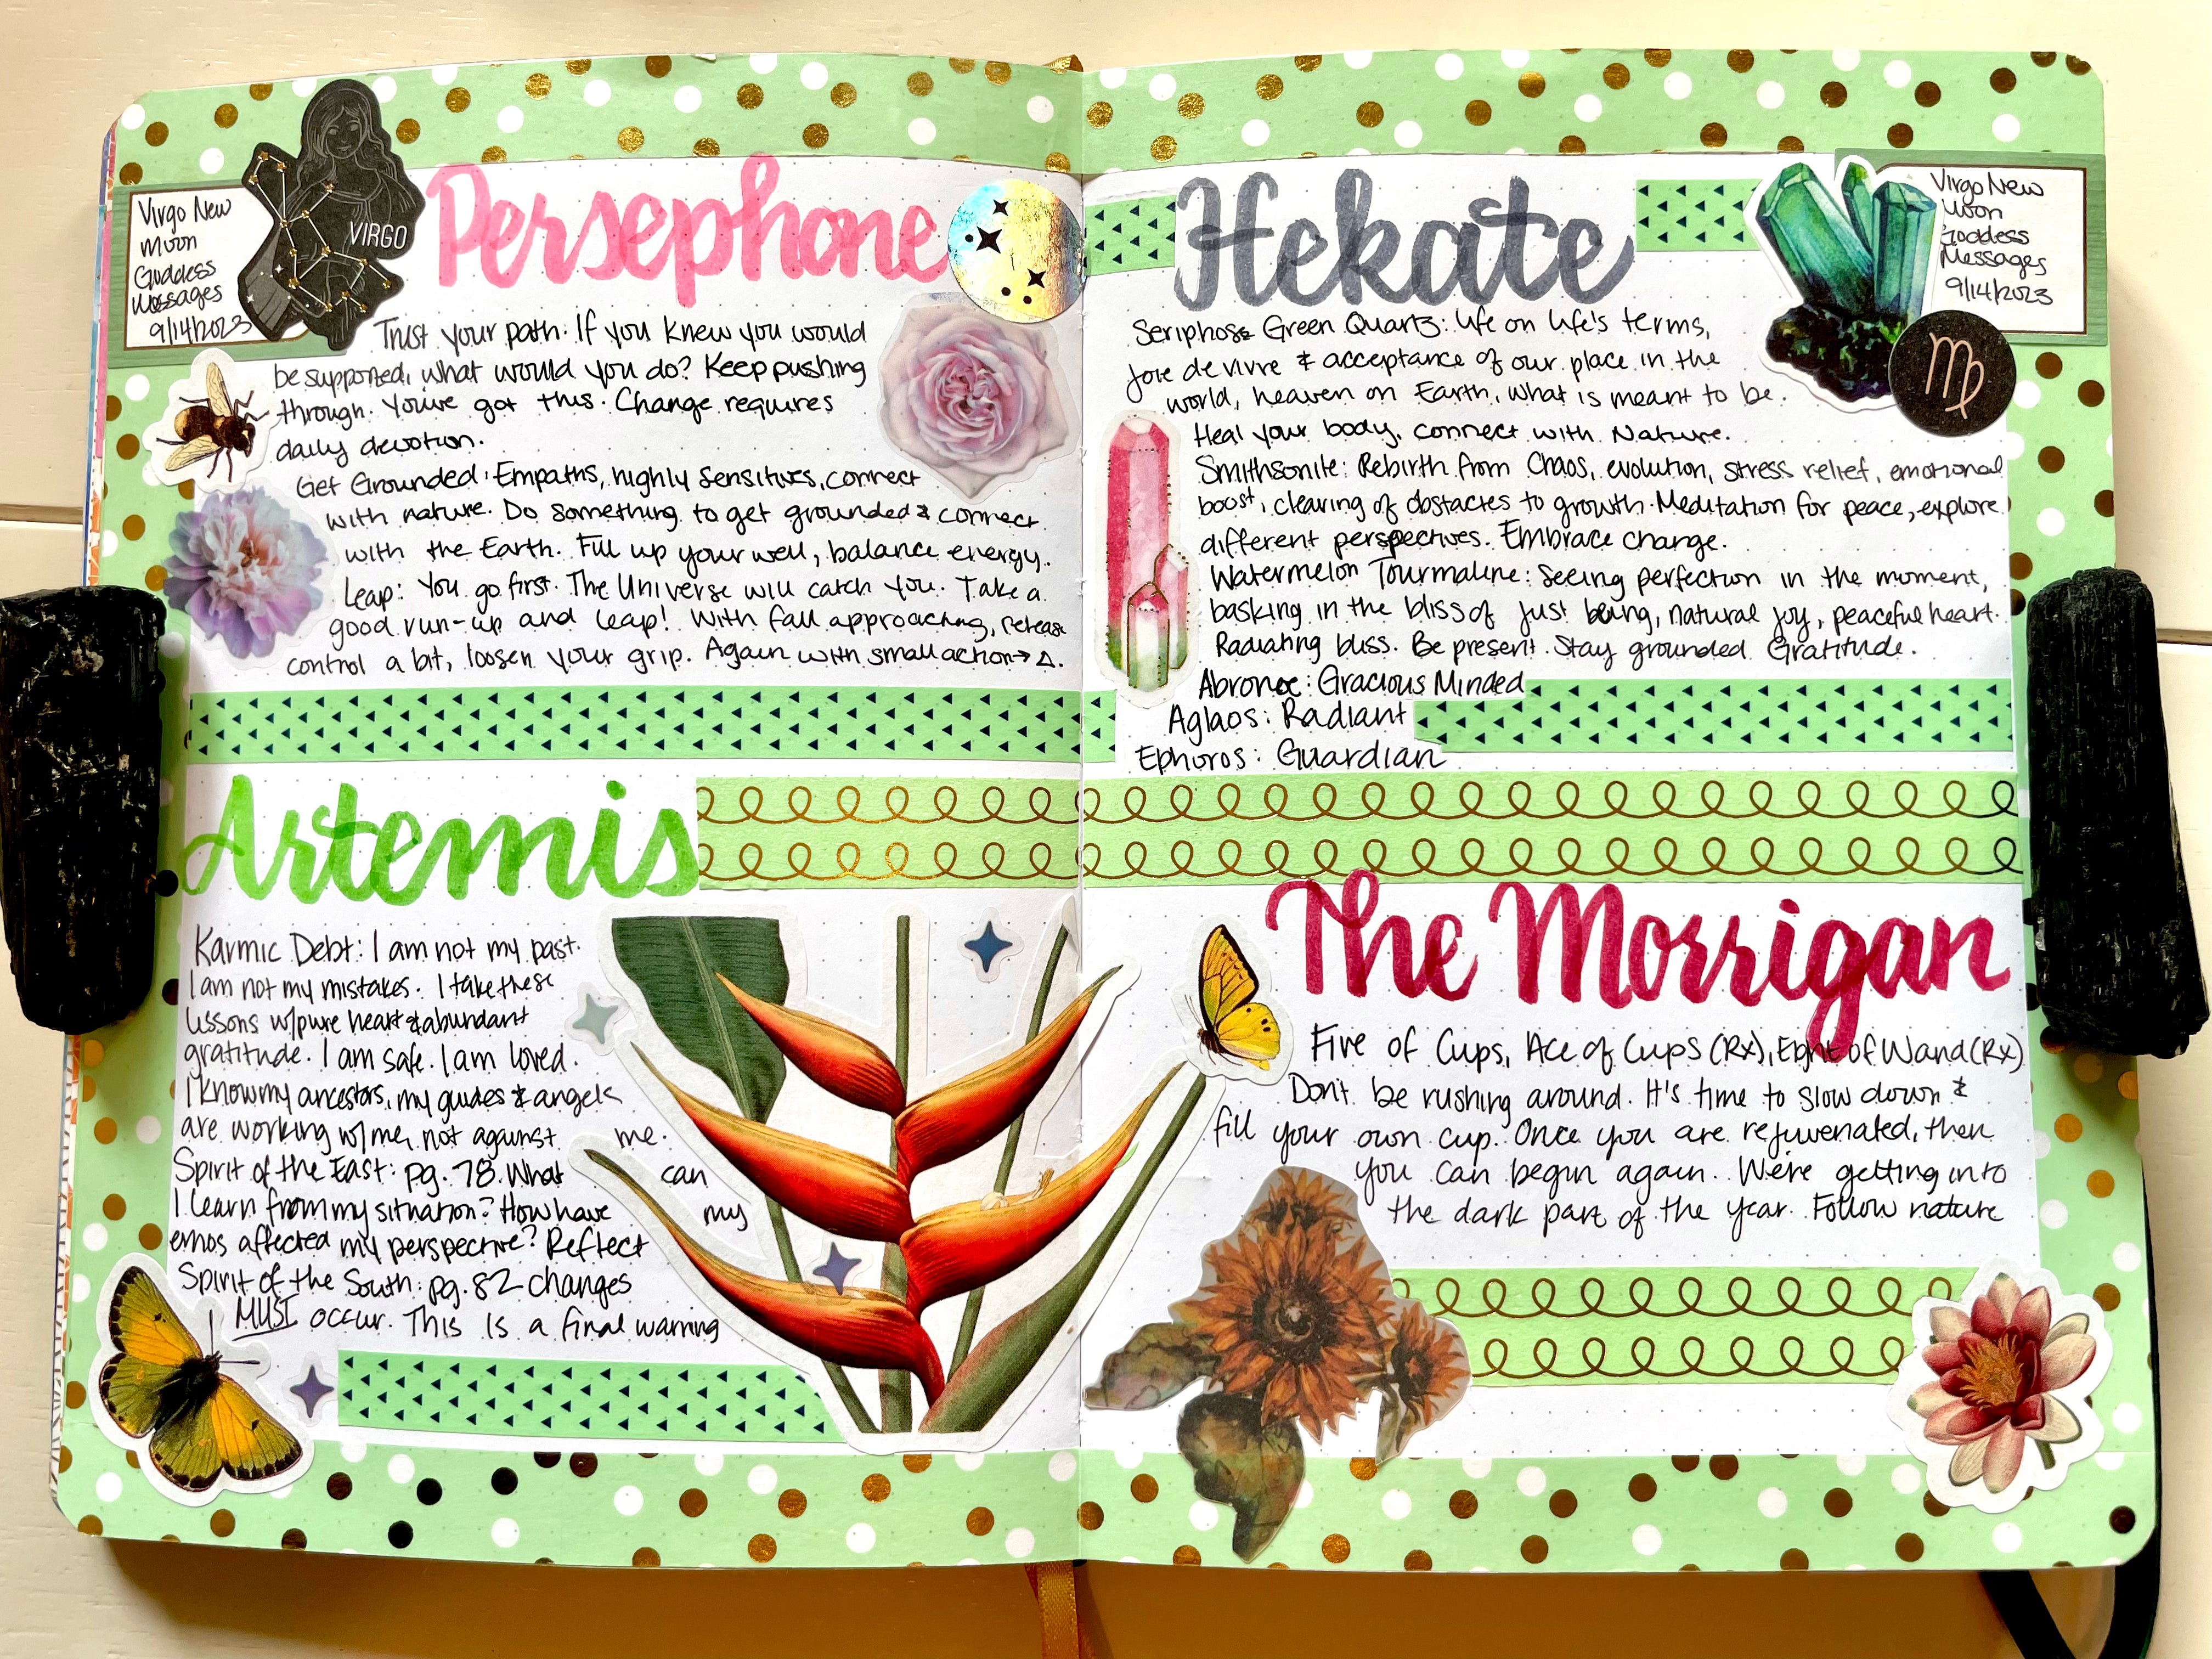 Virgo New
Moon
Goddess
Messages
9/14/2023
VIRGO
Persephone
Trust your path. If you knew you would
be supported, what would you do? Keep pushing
through. You've got this. Change requires
daily devotion.
Get Grounded: Empaths, highly sensitives, connect
with nature. Do something to get grounded & connect
with the Earth. Fill up your well, balance energy.
Leap: You go first. The Universe will catch you. Take a
good run-up and leap! With fall approaching, release
control a bit, loosen your grip. Again with small action → Δ.
Artemis
Karmic Debt: I am not my past.
I am not my mistakes. I take these
lessons w/pure heart & abundant
gratitude. I am safe. I am loved.
I know my ancestors, my guides & angels
are working w/me, not against me.
Spirit of the East: pg. 78. What can
I learn from my situation? How have my
emos affected my perspective? Reflect
Spirit of the South: pg. 82 changes
MUST occur. This is a final warning
Hekate
Virgo New
Moon
Goddess
Messages
9/14/2023
Seriphos Green Quartz: life on life's terms,
joie de vivre & acceptance of our place in the
world, heaven on Earth, what is meant to be.
Heal your body, connect with Nature.
Smithsonite: Rebirth from Chaos, evolution, stress relief, emotional
boost, clearing of obstacles to growth. Meditation for peace, explore
different perspectives. Embrace change.
Watermelon Tourmaline: Seeing perfection in the moment,
basking in the bliss of just being, natural joy, peaceful heart.
Radiating bliss. Be present. Stay grounded. Gratitude.
Abronoe: Gracious Minded
Aglaos: Radiant
Ephoros: Guardian
The Morrigan
Five of Cups, Ace of Cups (Rx), Eight of Wand (Rx)
Don't be rushing around. It's time to slow down &
fill your own cup. Once you are rejuvenated, then
you can begin again. We're getting into
the dark part of the year. Follow nature